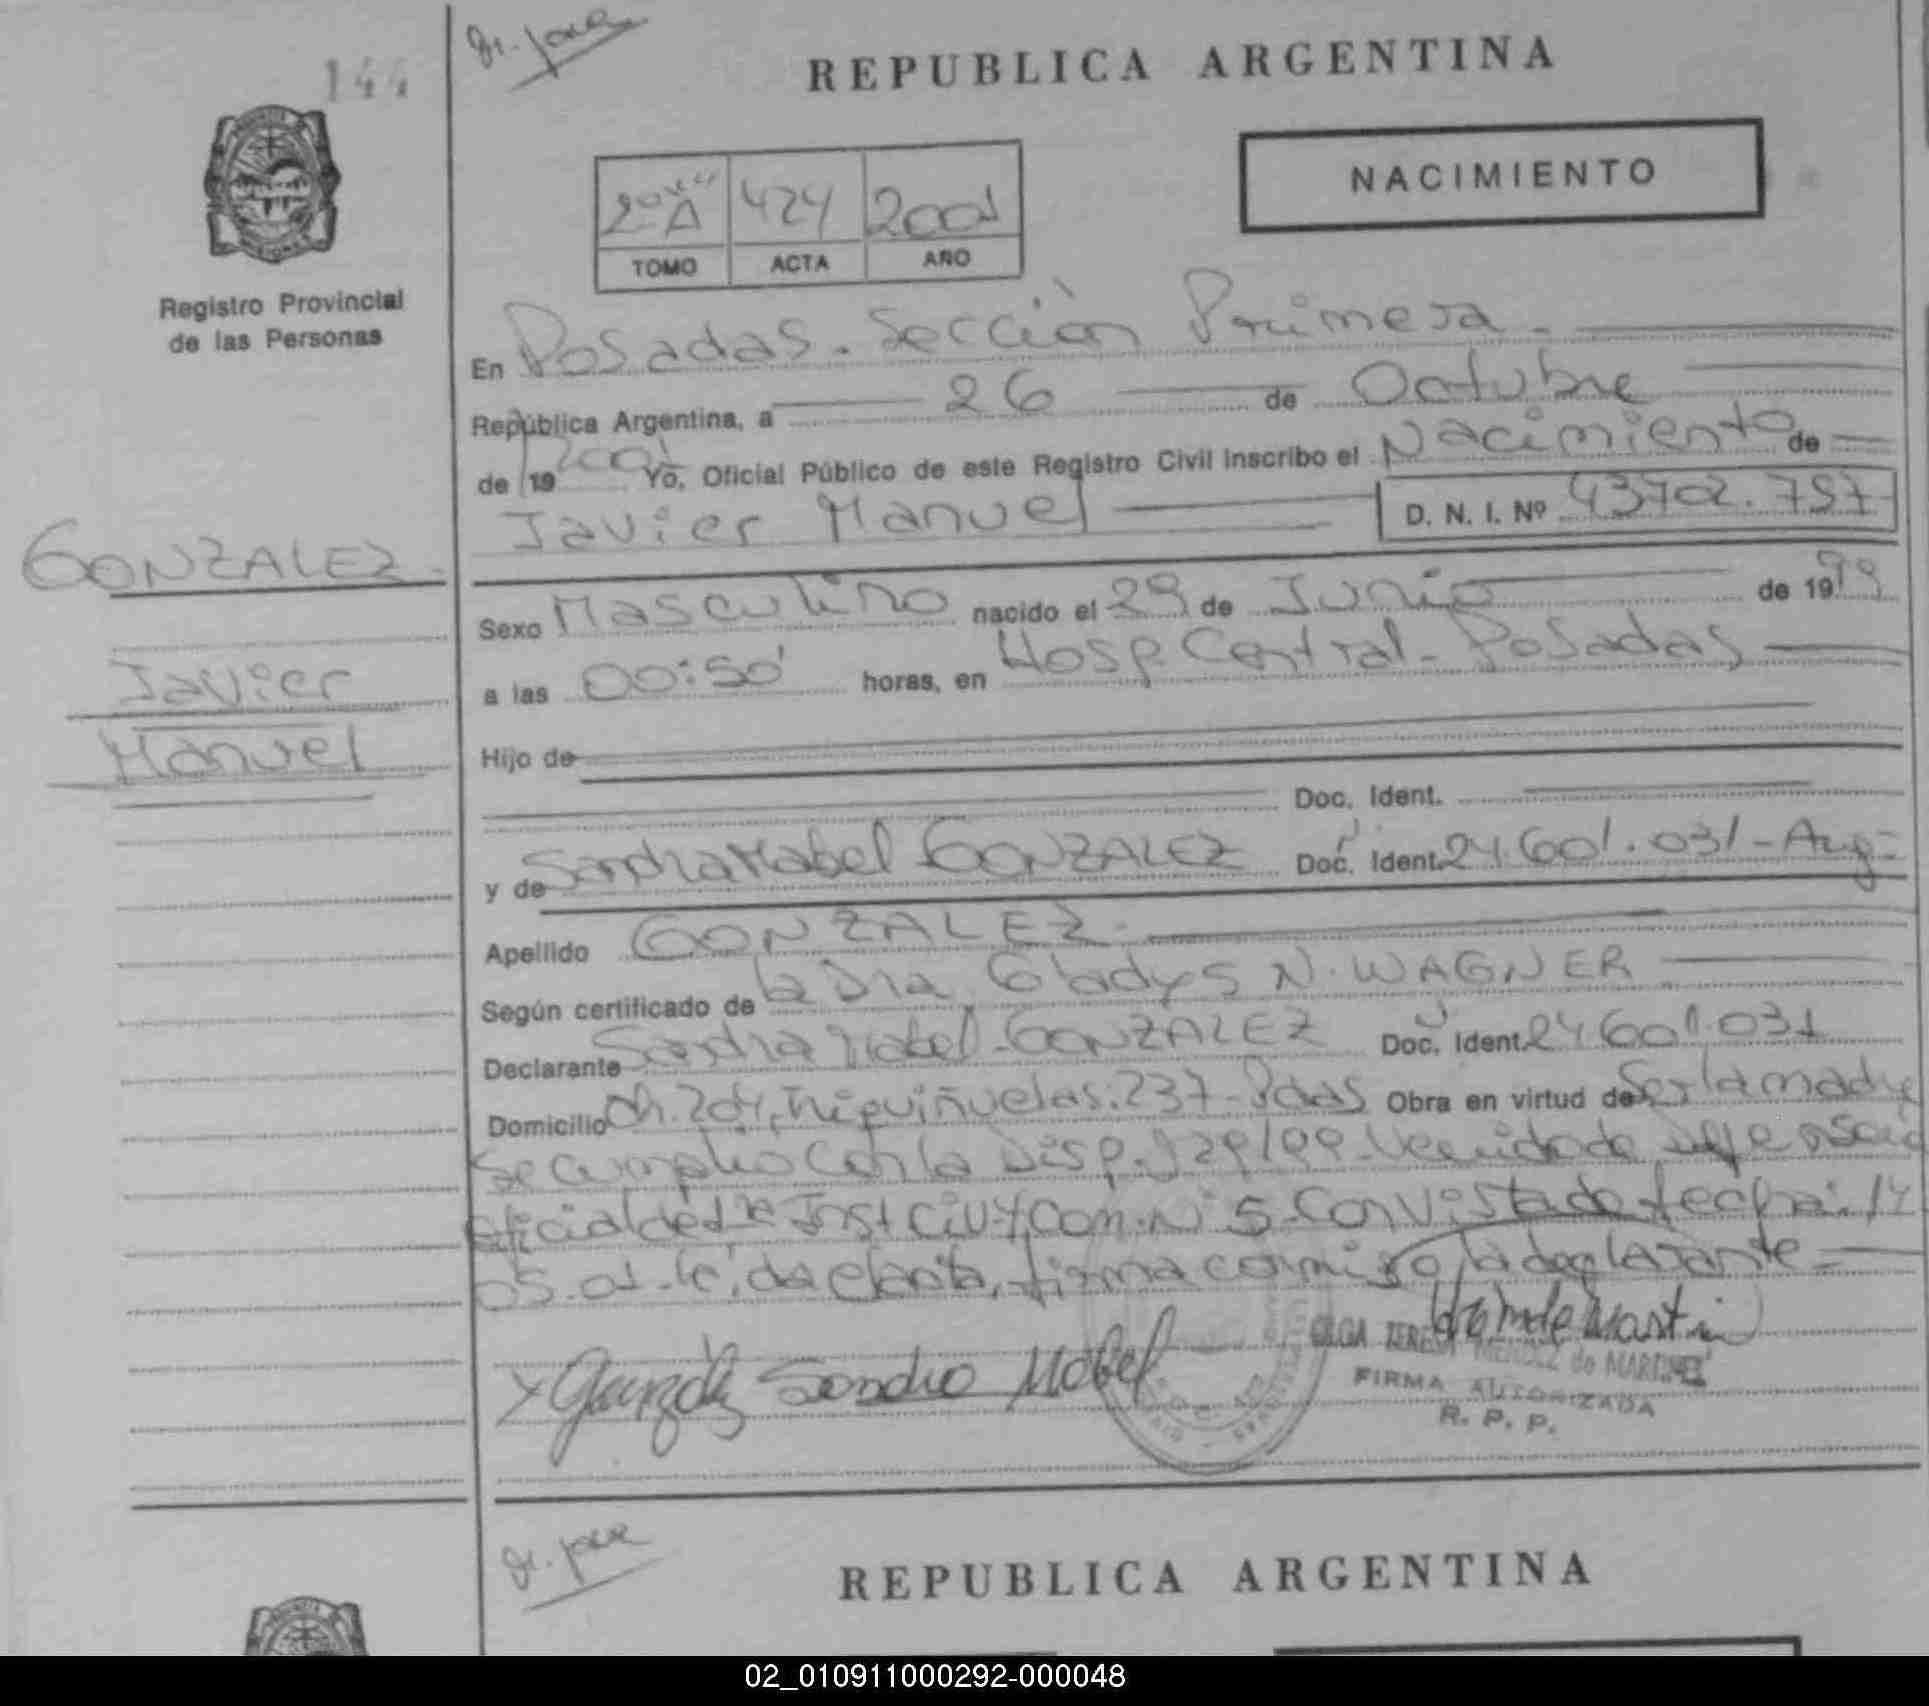 144
REPUBLICA ARGENTINA
NACIMIENTO
2º "A" 424 2001
TOMO ACTA AÑO
Registro Provincial
de las Personas
En Posadas. Sección Primera.
República Argentina, a 26 de Octubre
de 19 2001 Yo, Oficial Público de este Registro Civil inscribo el Nacimiento de
Javier Manuel D. N. I. Nº 43702.757
GONZALEZ.
Javier
Manuel
Sexo Masculino nacido el 29 de Junio de 1999
a las 00:50' horas, en Hosp Central - Posadas
Hijo de
Doc. Ident.
y de Sandra Mabel GONZALEZ Doc. Ident. 24.601.031 - Arg
Apellido GONZALEZ.
Según certificado de la Dra Gladys N. WAGNER
Declarante Sandra Mabel GONZALEZ Doc. Ident. 24601.031
Domicilio Ch. 204, 237 - Pdas Obra en virtud de Ser la madre
Se cumplió con la Disp. 129/99
oficial de 1ª Inst Civ. y Com. Nº 5 - Con Vista de fecha: 14
05.01 - leída el acta, firma conmigo la declarante
x González Sandra Mabel
OLGA TERESA MENDEZ de MARTINEZ
FIRMA AUTORIZADA
R. P. P.
REPUBLICA ARGENTINA
02_010911000292-000048